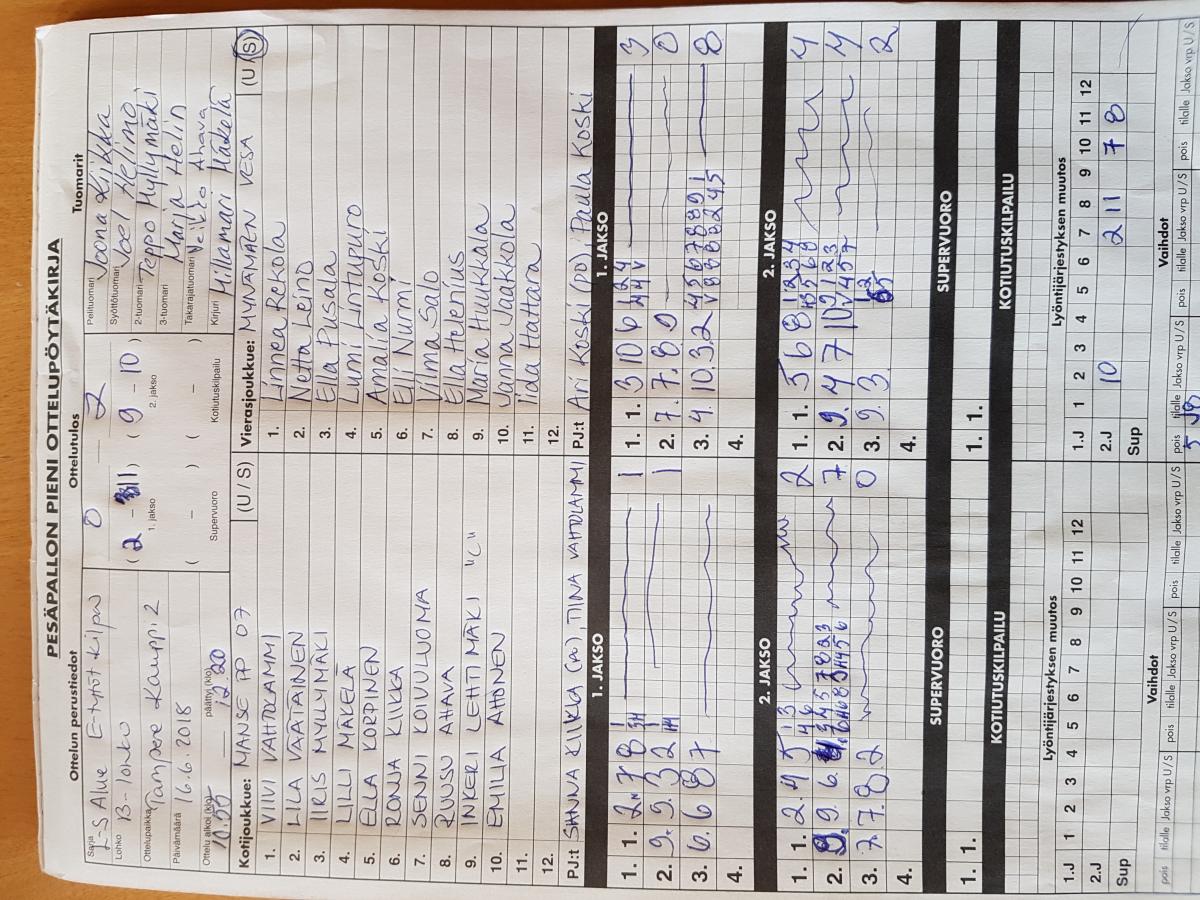 PESÄPALLON PIENI OTTELUPÖYTÄKIRJA
Ottelun perustiedot
Ottelutulos
Tuomarit
Sarja
L-S Alue E-tytöt kilpa
Lohko
B-lohko
Ottelupaikka
Tampere Kauppi 2
Päivämäärä
16.6.2018
Ottelu alkoi (klo)
päättyi (klo)
12.20
0 – 2
( 2 – 11 ) ( 9 – 10 )
1. jakso
2. jakso
( – ) ( – )
Supervuoro
Kotiutuskilpailu
Pelituomari
Joona Kiikka
Syöttötuomari
Joel Helimo
2-tuomari
Teppo Myllymäki
3-tuomari
Marja Helin
Takarajatuomari
Veikko Ahava
Kirjuri
Hillamari Mäkelä
Kotijoukkue: MANSE PP 07 (U / S)
1. VIIVI VAHTOLAMMI
2. LILA VÄÄTÄINEN
3. IIRIS MYLLYMÄKI
4. LILLI MÄKELÄ
5. ELLA KORPINEN
6. RONJA KIIKKA
7. SENNI KOIVULUOMA
8. RUUSU AHAVA
9. INKERI LEHTIMÄKI "C"
10. EMILIA AHONEN
11.
12.
PJ:t SANNA KIIKKA (n) TIINA VAHTOLAMMI
Vierasjoukkue: MYNÄMÄEN VESA (U / S)
1. Linnea Rekola
2. Netta Leino
3. Ella Pusala
4. Lumi Lintupuro
5. Amalia Koski
6. Elli Nurmi
7. Vilma Salo
8. Ella Helenius
9. Maria Huukkala
10. Vanna Jaakkola
11. Iida Hattara
12.
PJ:t Ari Koski (pp), Paula Koski
1. JAKSO
1. 1. 2 7 8 1
2. 9. 9. 3 2 1
3. 6. 6 8 7
4.
2. JAKSO
1. 1. 2. 4 5 2
2. 9. 9. 6. 7
3. 7. 7. 8 2 0
4.
SUPERVUORO
1. 1.
KOTIUTUSKILPAILU
1. JAKSO
1. 1. 3 10 6 3
2. 7. 7. 8. 9 0
3. 4. 10. 3. 2 8
4.
2. JAKSO
1. 1. 5 6 8 4
2. 9. 4 7 10 4
3. 9. 3. 2
4.
SUPERVUORO
1. 1.
KOTIUTUSKILPAILU
Lyöntijärjestyksen muutos
1.J 1 2 3 4 5 6 7 8 9 10 11 12
2.J
Sup
Vaihdot
pois tilalle Jakso vrp U / S pois tilalle Jakso vrp U / S pois tilalle Jakso vrp U / S
Lyöntijärjestyksen muutos
1.J 1 2 3 4 5 6 7 8 9 10 11 12
2.J 10 2 11 7 8
Sup
Vaihdot
pois tilalle Jakso vrp U / S pois tilalle Jakso vrp U / S pois tilalle Jakso vrp U / S